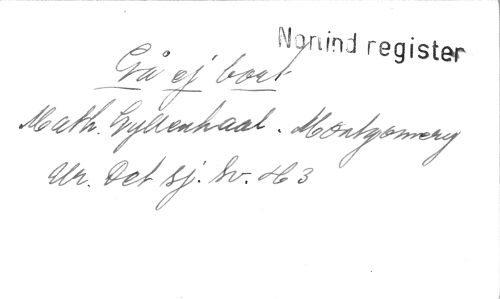 Nortind register
Gå ej bort
Math. Gyllenhaal. Montgomery
Ur. Det sj. Sv. H 3